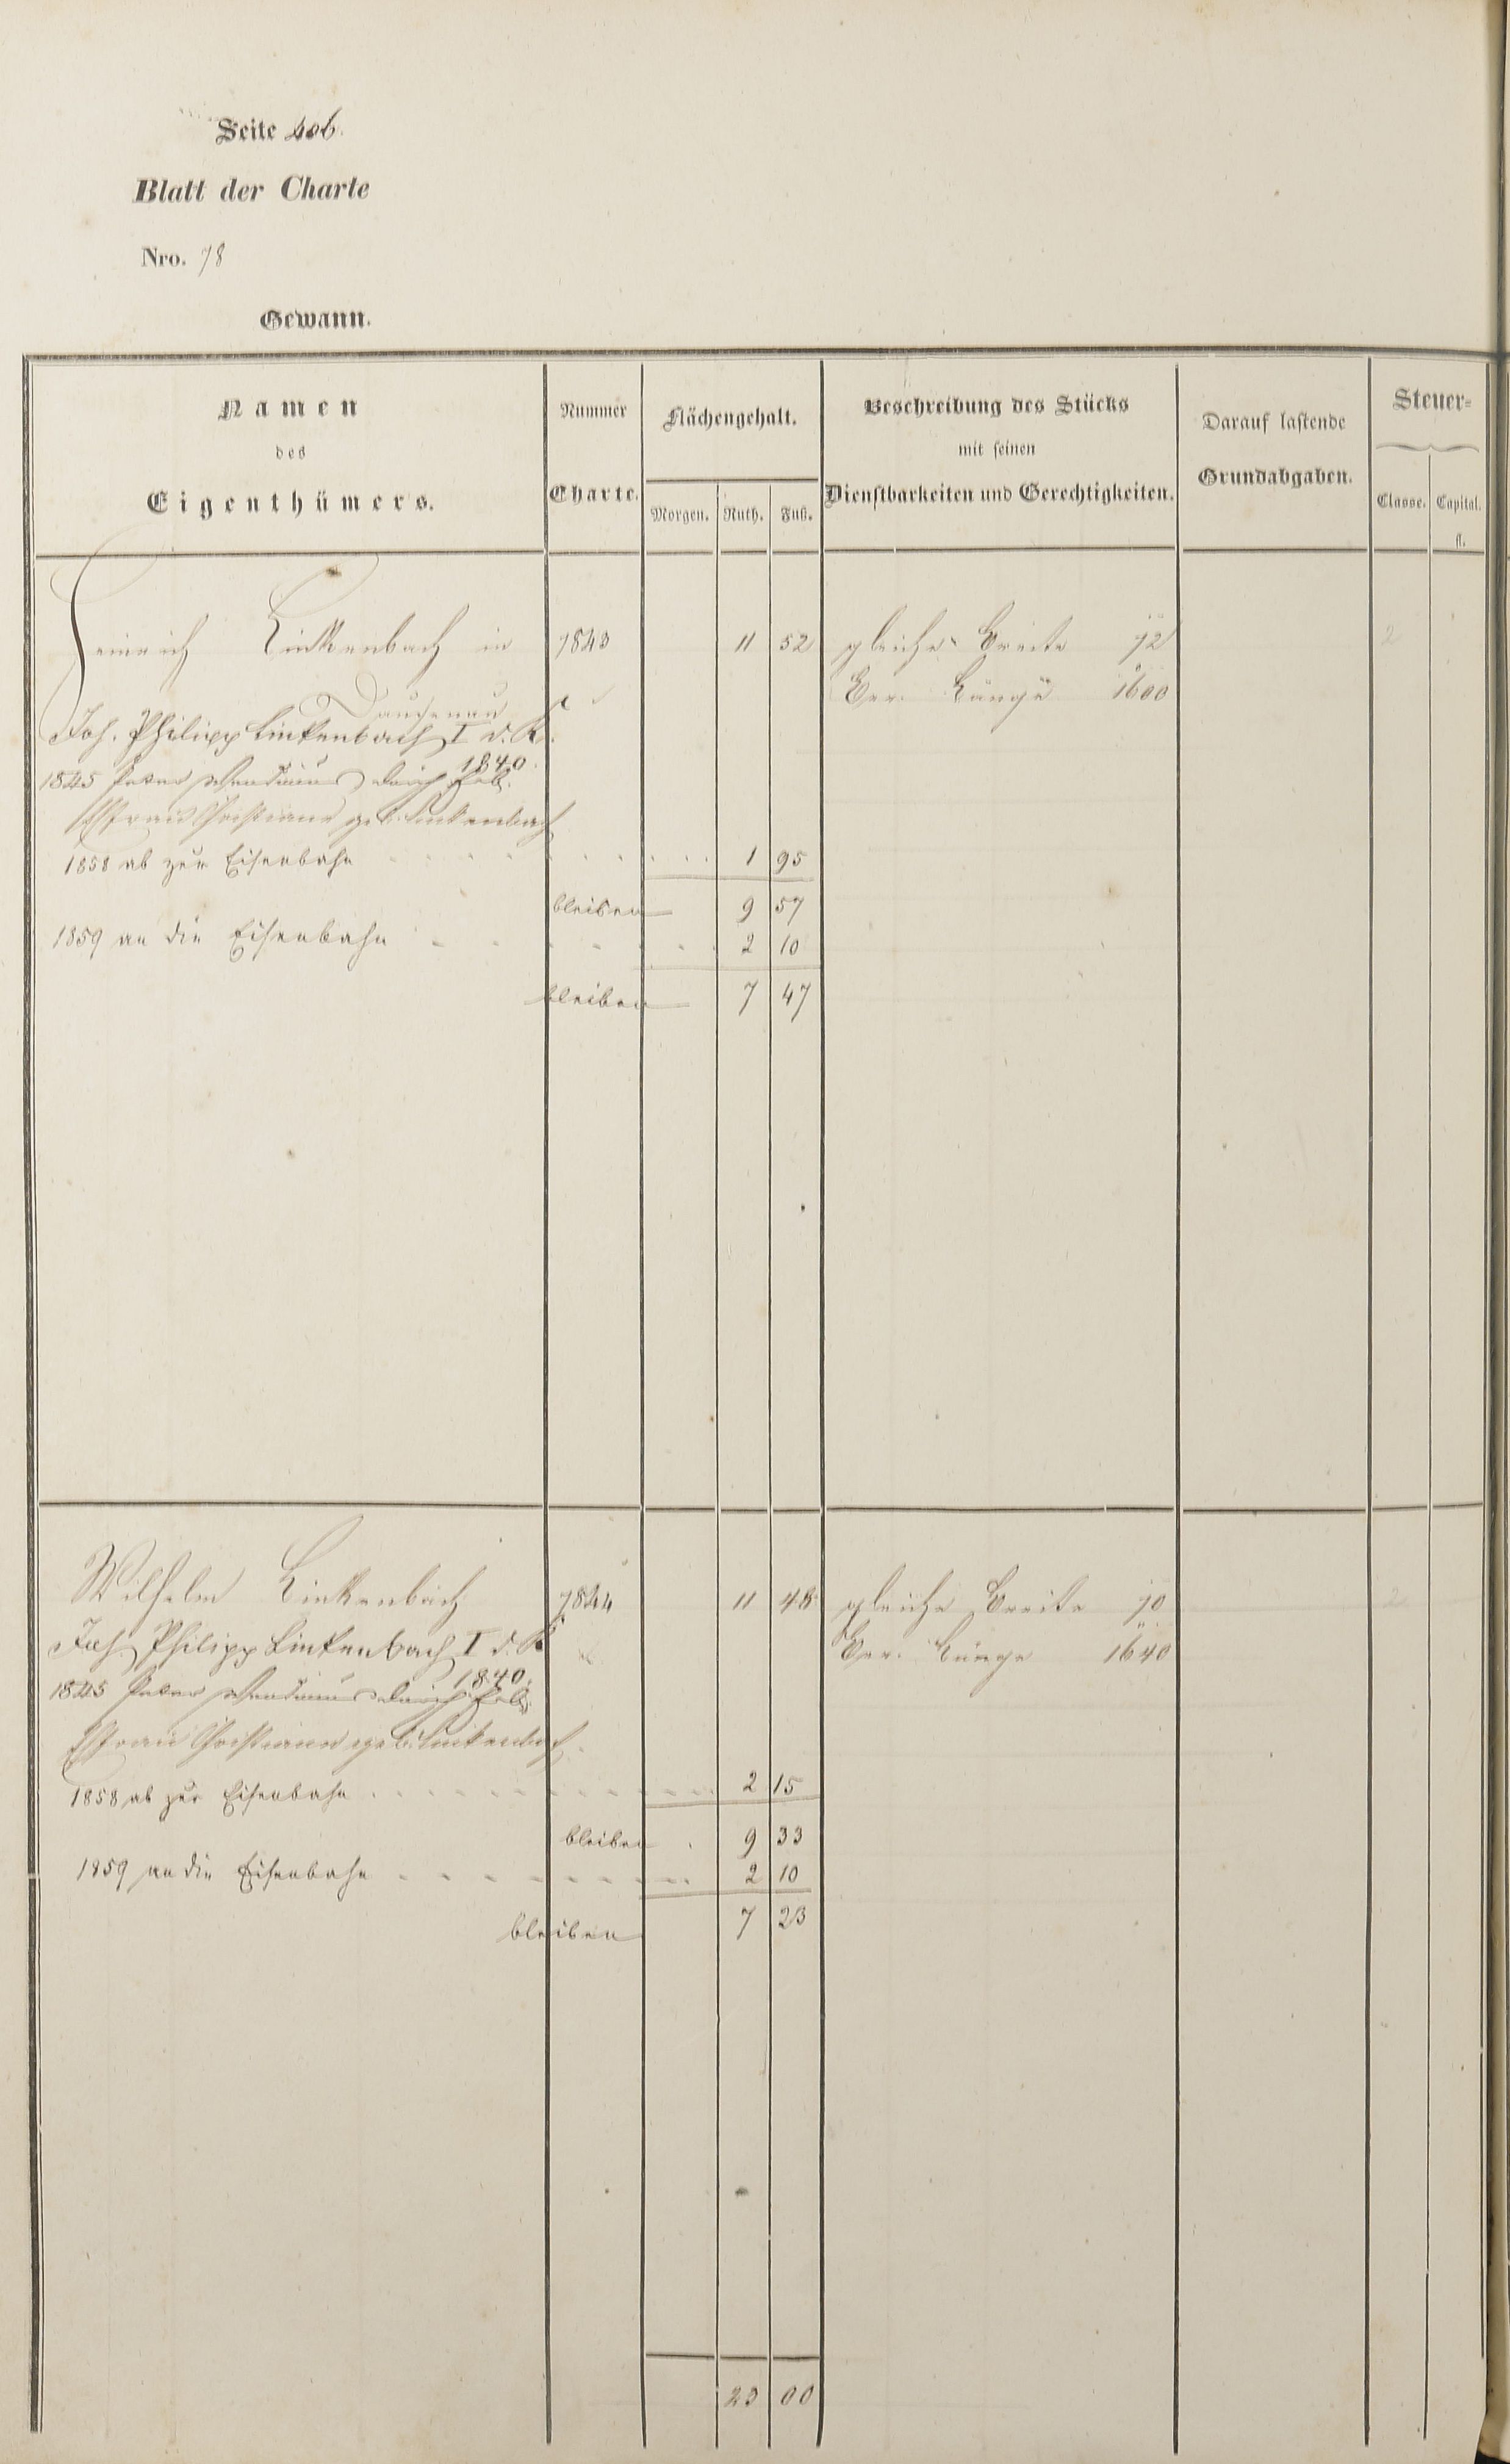 Seite 406.
Blatt der Charte
Nro. 78
Gewann.
Namen des Eigenthümers.
Nummer Charte.
Flächengehalt.
Morgen. Ruth. Fuß.
Beschreibung des Stücks mit seinen Dienstbarkeiten und Gerechtigkeiten.
Darauf lastende Grundabgaben.
Steuer-
Classe. Capital.
fl.
Heinrich Linkenbach in 7843 11 52 gleiche Breite 72 2
Dausenau Err. Länge 1600
Joh. Philipp Linkenbach I d. K.
1840.
1845 Peter durch
Ehfrau Christiane geb. Linkenbach
1858 ab zur Eisenbahn 1 95
bleiben 9 57
1859 an die Eisenbahn 2 10
bleiben 7 47
Wilhelm Linkenbach 7844 11 48 gleiche Breite 70 2
Joh. Philipp Linkenbach I d. K. Err. Länge 1640
1840.
1845 Peter durch
Ehfrau Christiane geb. Linkenbach.
1858 ab zur Eisenbahn 2 15
bleiben 9 33
1859 an die Eisenbahn 2 10
bleiben 7 23
23 00